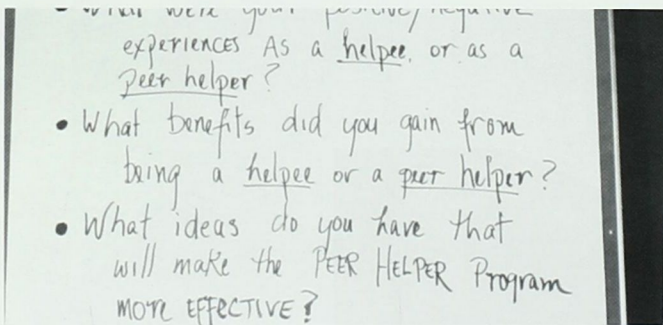 • What were your positive/negative
experiences As a helpee, or as a
peer helper?
• What benefits did you gain from
being a helpee or a peer helper?
• What ideas do you have that
will make the PEER HELPER Program
more EFFECTIVE?